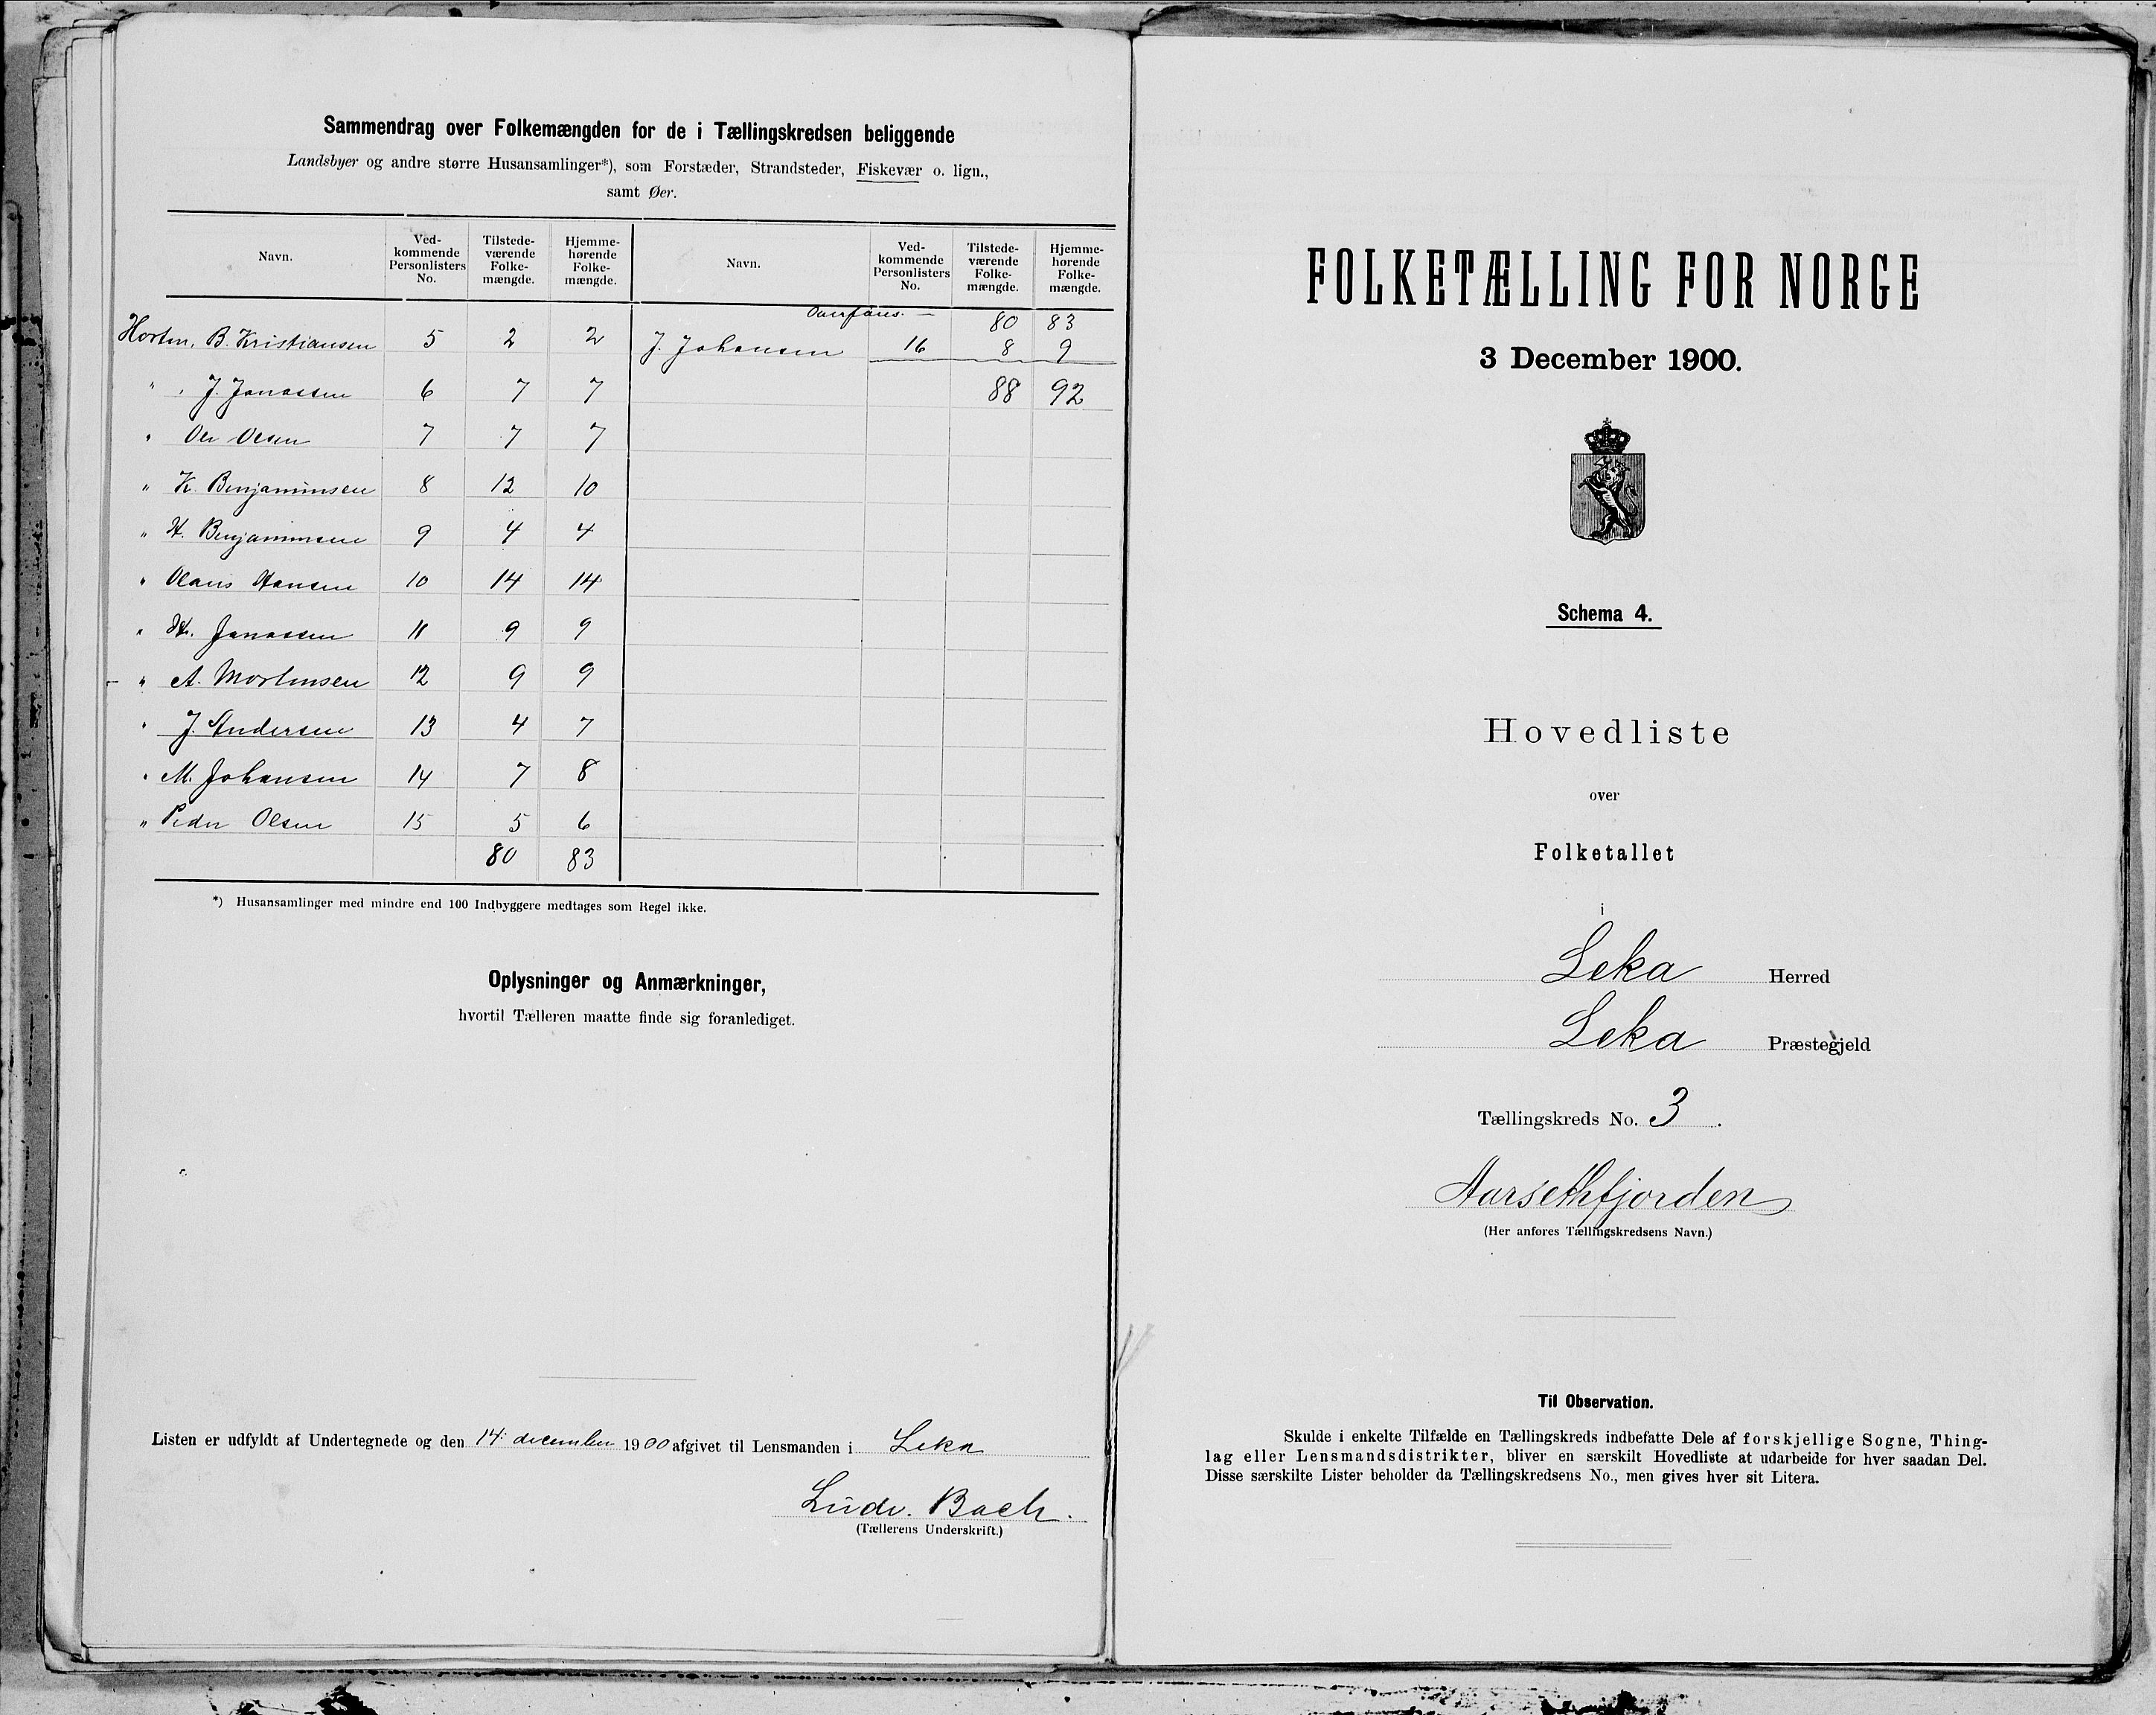 Sammendrag over Folkemængden for de i Tællingskredsen beliggende
Landsbyer og andre større Husansamlinger*), som Forstæder, Strandsteder, Fiskevær o. lign.,
samt Øer.
Navn. Ved-kommende Personlisters No. Tilstede-værende Folke-mængde. Hjemme-hørende Folke-mængde. Navn. Ved-kommende Personlisters No. Tilstede-værende Folke-mængde. Hjemme-hørende Folke-mængde.
Horten, B. Kristiansen 5 2 2
" J. Jonassen 6 7 7
" Ole Olsen 7 7 7
" K. Benjaminsen 8 12 10
" H. Benjaminsen 9 4 4
" Olaus Hansen 10 14 14
" H. Jonassen 11 9 9
" A. Mortensen 12 9 9
" J. Andersen 13 4 7
" M. Johansen 14 7 8
" Peder Olsen 15 5 6
80 83
80 83
J. Johansen 16 8 9
88 92
*) Husansamlinger med mindre end 100 Indbyggere medtages som Regel ikke.
Oplysninger og Anmærkninger,
hvortil Tælleren maatte finde sig foranlediget.
Listen er udfyldt af Undertegnede og den 14. december 1900 afgivet til Lensmanden i Leka
Ludv. Bach.
(Tællerens Underskrift.)
FOLKETÆLLING FOR NORGE
3 December 1900.
Schema 4.
Hovedliste
over
Folketallet
i
Leka Herred
Leka Præstegjeld
Tællingskreds No. 3.
Aarsethfjorden
(Her anføres Tællingskredsens Navn.)
Til Observation.
Skulde i enkelte Tilfælde en Tællingskreds indbefatte Dele af forskjellige Sogne, Thing-
lag eller Lensmandsdistrikter, bliver en særskilt Hovedliste at udarbeide for hver saadan Del.
Disse særskilte Lister beholder da Tællingskredsens No., men gives hver sit Litera.